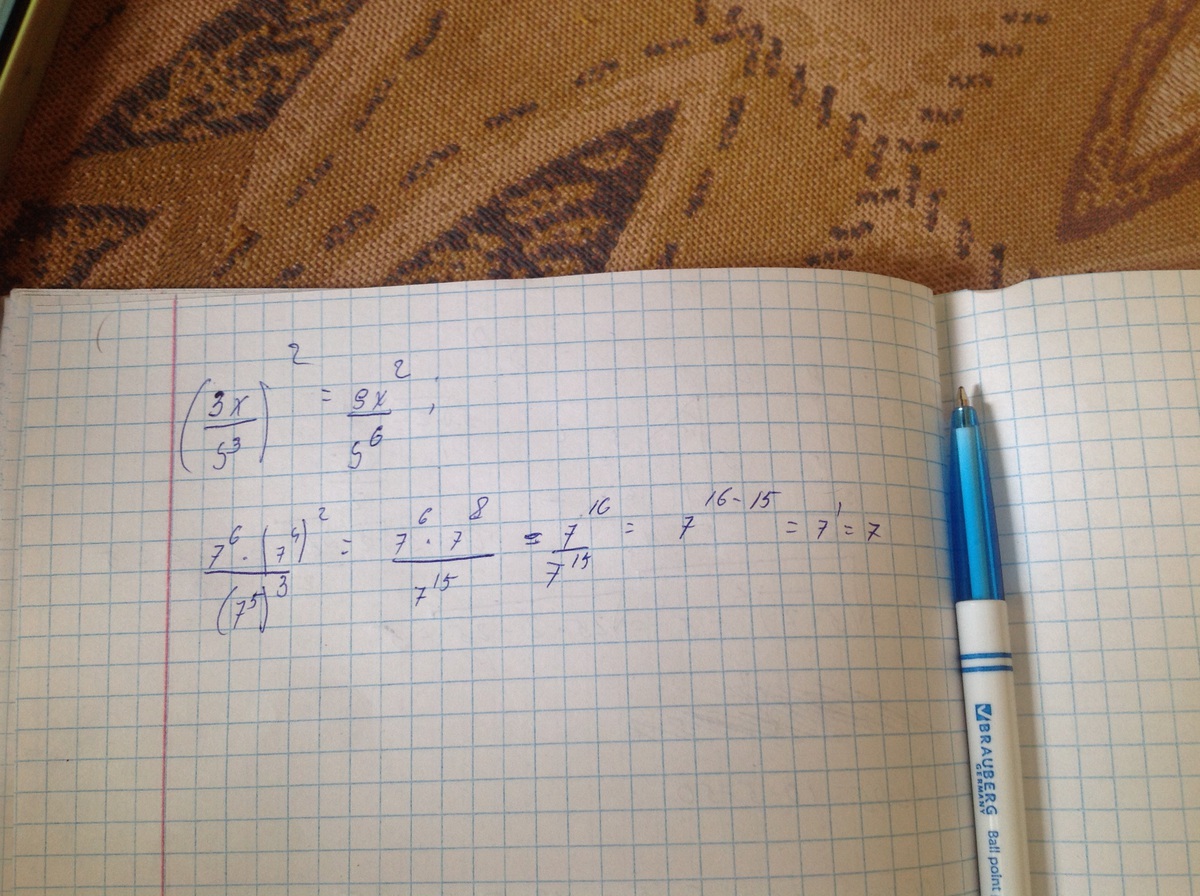 (3x/5³)² = 9x²/5⁶ ;
7⁶ · (7⁴)² / (7⁵)³ = 7⁶ · 7⁸ / 7¹⁵ = 7¹⁶ / 7¹⁵ = 7¹⁶⁻¹⁵ = 7¹ = 7
BRAUBERG
GERMANY
Ball point